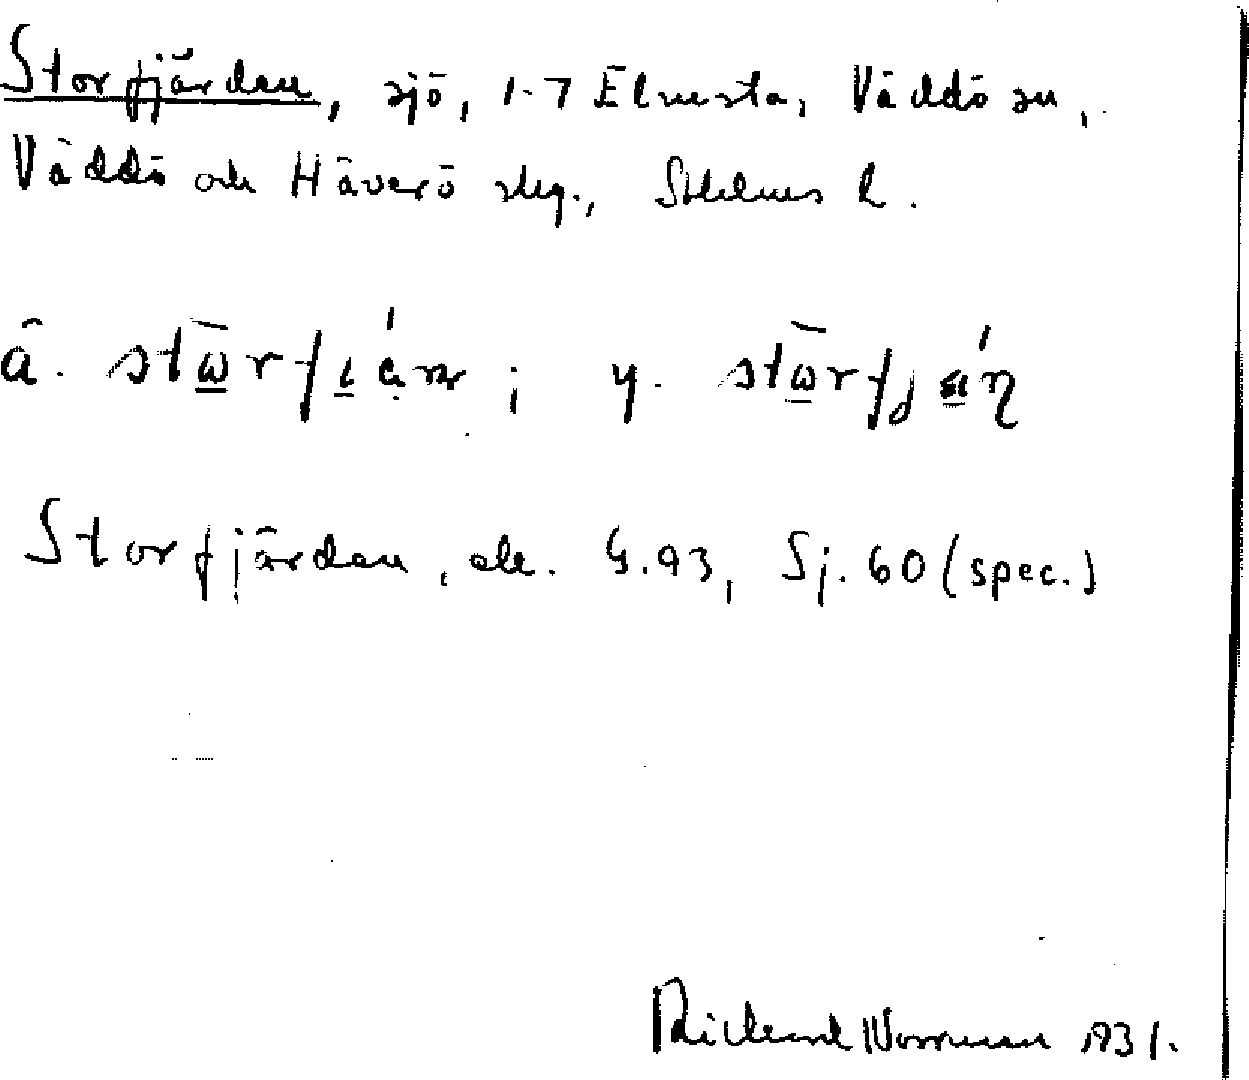 Storfjärden, sjö, 1-7 Elmsta, Väddö sn,
Väddö och Häverö skg., Sthlms l.
ä. stω̄rfιán ; y. stω̄rfjáη
Storfjärden, ek. G.93, Sj. 60 (spec.)
Rickard Norrman 1931.